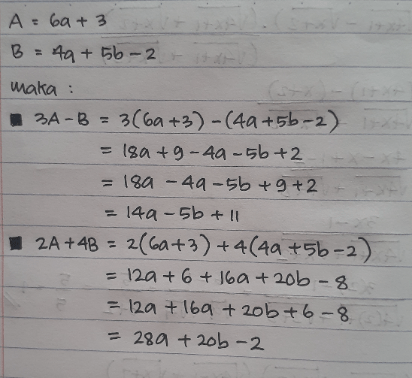 A = 6a + 3
B = 4a + 5b - 2
maka :
■ 3A - B = 3(6a+3) - (4a+5b-2)
= 18a + 9 - 4a - 5b + 2
= 18a - 4a - 5b + 9 + 2
= 14a - 5b + 11
■ 2A + 4B = 2(6a+3) + 4(4a+5b-2)
= 12a + 6 + 16a + 20b - 8
= 12a + 16a + 20b + 6 - 8
= 28a + 20b - 2